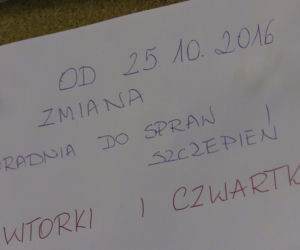 OD 25 10. 2016
ZMIANA
RADNIA DO SPRAW I
SZCZEPIEŃ
WTORKI I CZWARTK